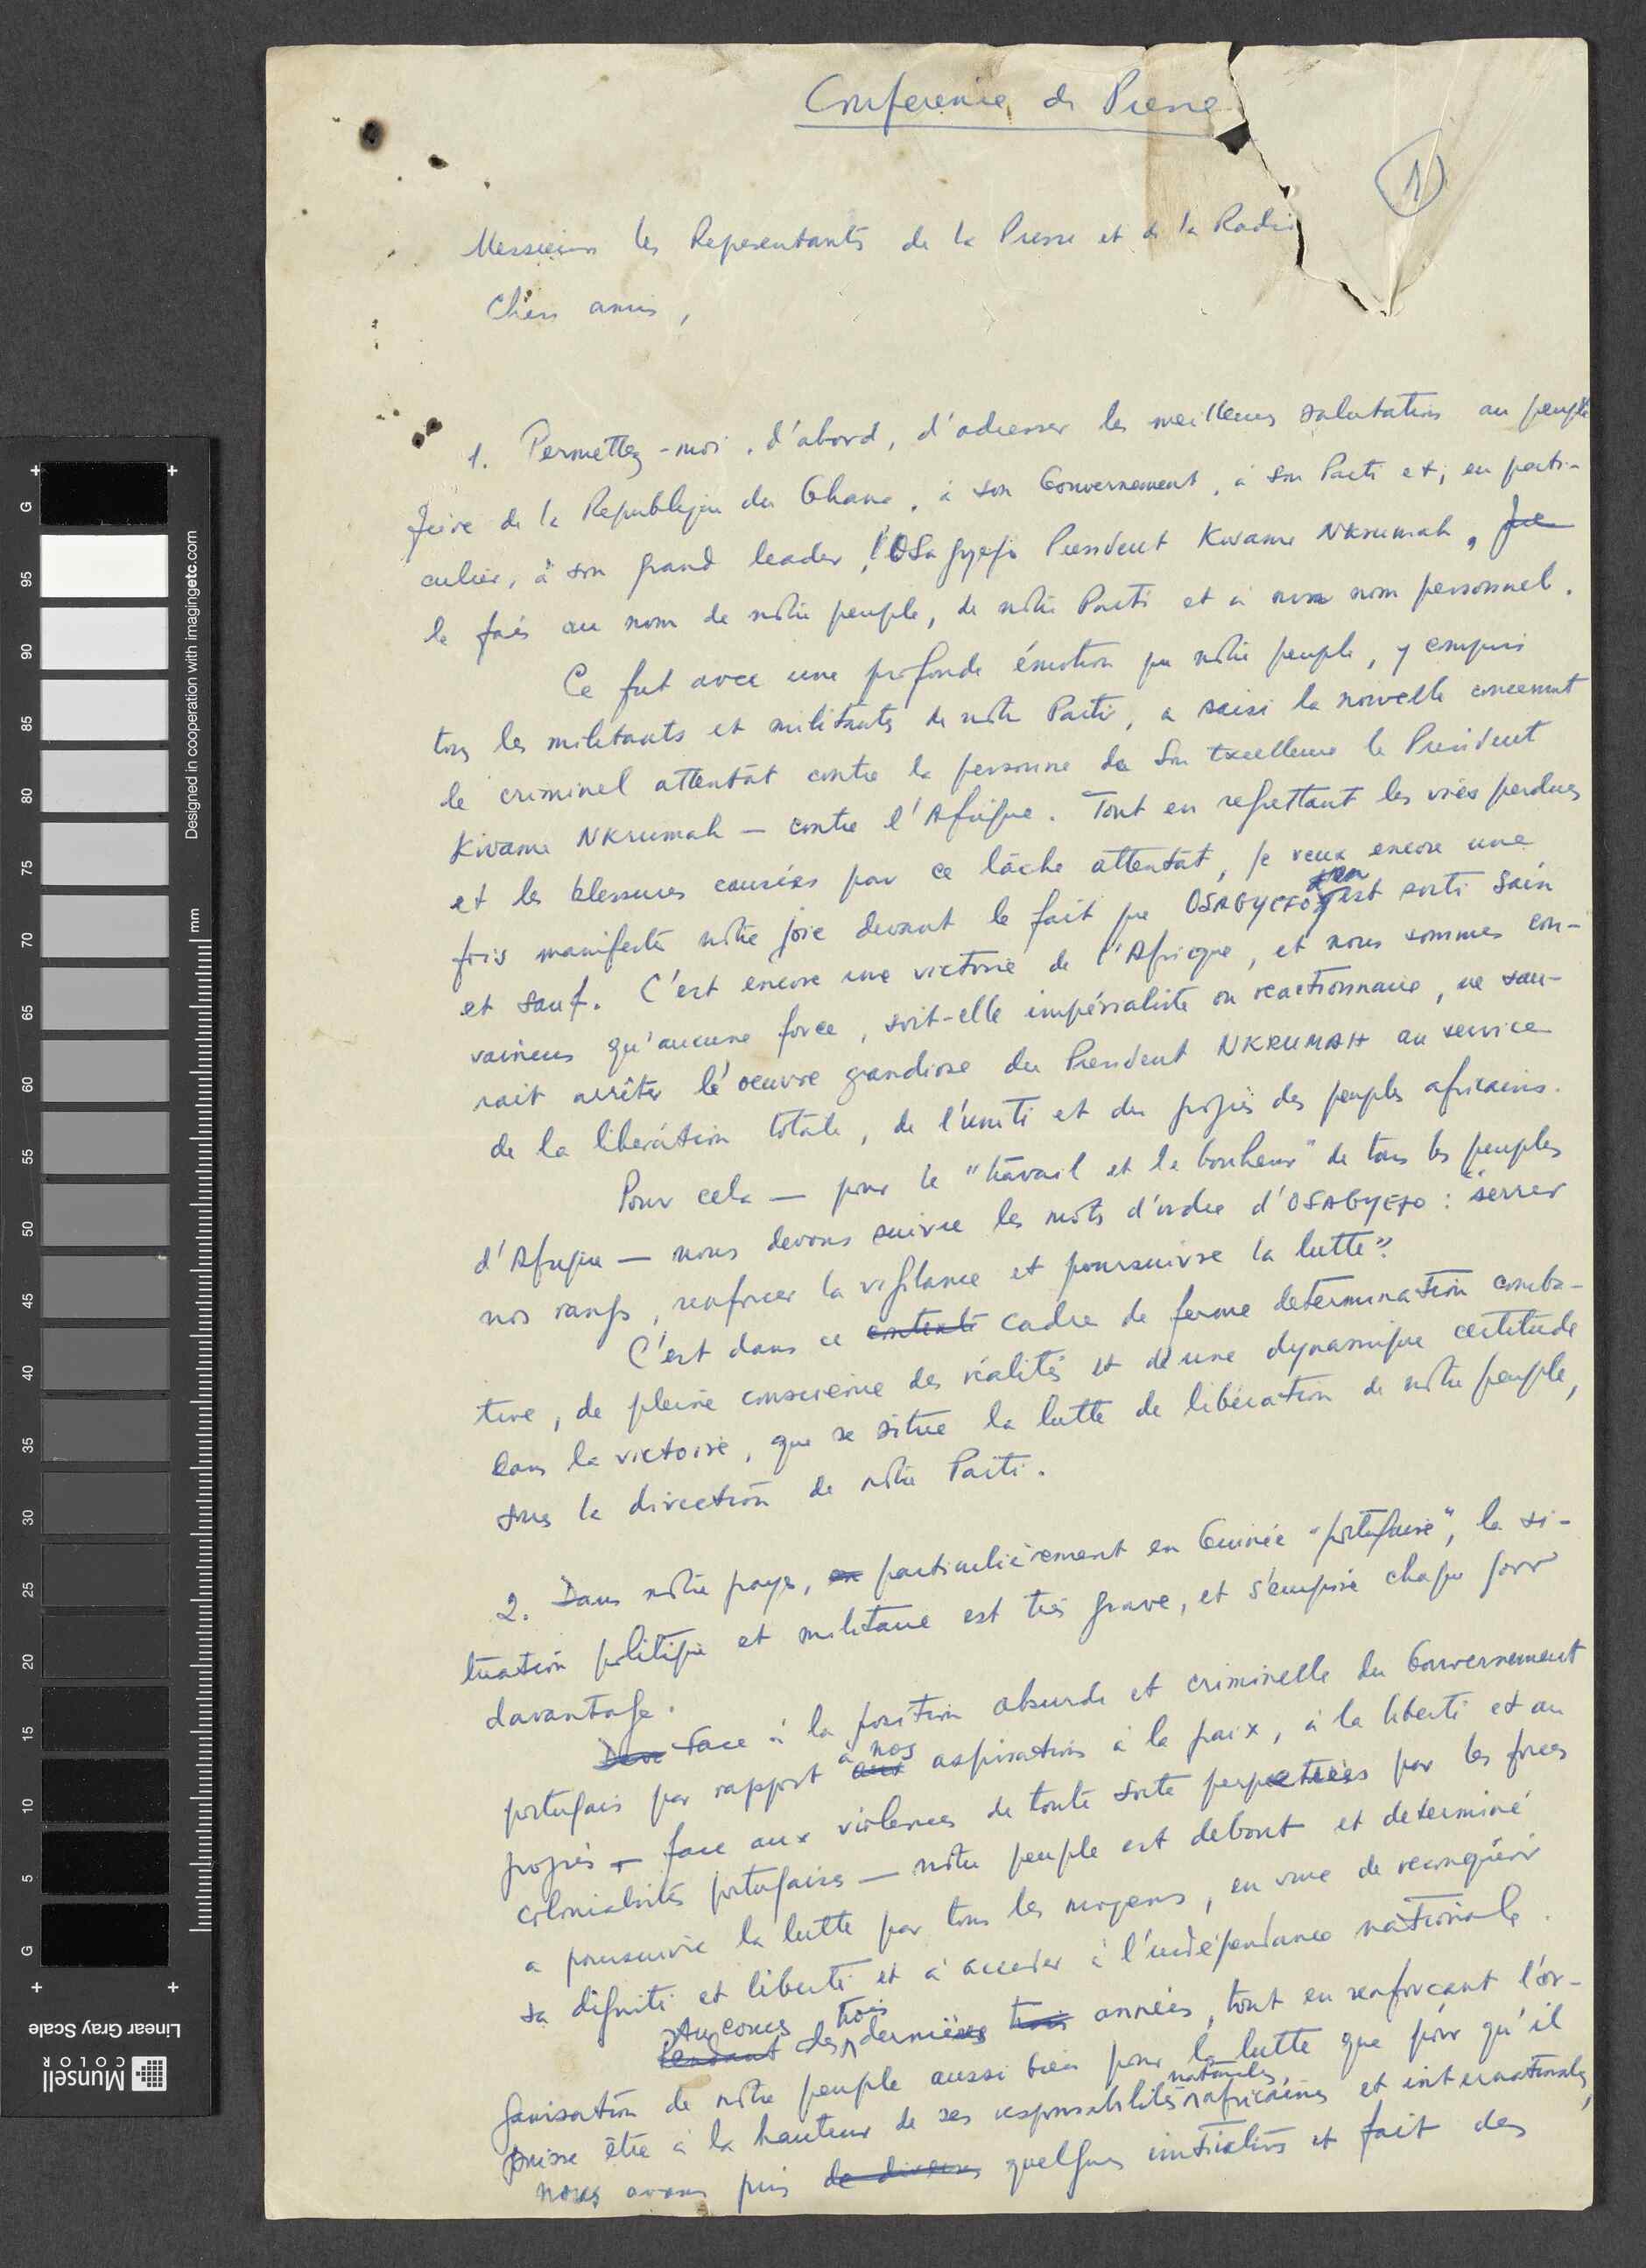 Conference de Presse
1
Messieurs les Representants de la Presse et de la Radio
Chers amis,
1. Permettez-moi, d'abord, d'adresser les meilleures salutations au peuple
frère de la Republique du Ghana, à son Gouvernement, à son Parti et, en parti-
culier, à son grand leader, l'OSagyefo President Kwame Nkrumah, Je
le fais au nom de nôtre peuple, de nôtre Parti et à mon nom personnel.
Ce fut avec une profonde émotion que nôtre peuple, y compris
tous les militants et militants de nôtre Parti, a saisi la nouvelle concernant
le criminel attentat contre la personne de Son Excellence le President
Kwame Nkrumah — contre l'Afrique. Tout en regrettant les vies perdues
et les blessures causées par ce lâche attentat, je veux encore une
fois manifester nôtre joie devant le fait que OSAGYEFO en est sorti sain
et sauf. C'est encore une victoire de l'Afrique, et nous sommes con-
vaincus qu'aucune force, soit-elle impérialiste ou reactionnaire, ne sau-
rait arrêter l'oeuvre grandiose du President NKRUMAH au service
de la libération totale, de l'unité et du progrès des peuples africains.
Pour cela — pour le "travail et le bonheur" de tous les peuples
d'Afrique — nous devons suivre les mots d'ordre d'OSAGYEFO: "serrer
nos rangs, renforcer la vigilance et poursuivre la lutte".
C'est dans ce contexte cadre de ferme determination comba-
tive, de pleine conscience des réalités et d'une dynamique certitude
dans la victoire, que se situe la lutte de libération de nôtre peuple,
sous la direction de nôtre Parti.
2. Dans nôtre pays, en particulièrement en Guinée "portugaise", la si-
tuation politique et militaire est très grave, et s'empire chaque jour
davantage.
Dev Face à la position absurde et criminelle du Gouvernement
portugais par rapport aux à nos aspirations à la paix, à la liberté et au
progrès — face aux violences de toute sorte perpetrées par les forces
colonialistes portugaises — nôtre peuple est debout et determiné
a poursuivre la lutte par tous les moyens, en vue de reconquérir
sa dignité et liberté et à acceder à l'indépendance nationale.
Pendant Au cours des trois dernières trois années, tout en renforçant l'or-
ganisation de nôtre peuple aussi bien pour la lutte que pour qu'il
puisse être à la hauteur de ses responsabilités nationales, africaines et internationales,
nous avons pris de diverses quelques initiatives et fait des
G
95
90
85
80
75
70
65
60
55
50
45
40
35
30
25
20
15
10
5
G
mm
Designed in cooperation with imagingetc.com
Linear Gray Scale
Munsell
COLOR